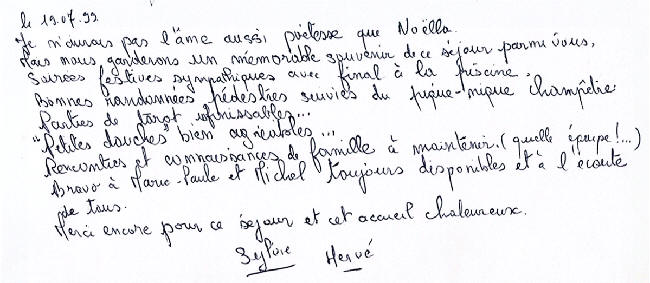 le 19.07.99
Je n'aurais pas l'âme aussi poétesse que Noëlla.
Mais nous garderons un mémorable souvenir de ce séjour parmi vous,
Soirées festives sympathiques avec final à la piscine.
Bonnes randonnées pédestres suivies du pique-nique champêtre
Parties de tarot infinissables...
"Petites douches" bien agréables...
Rencontres et connaissances de famille à maintenir. (quelle équipe!...)
Bravo à Marie-Paule et Michel toujours disponibles et à l'écoute
de tous.
Merci encore pour ce séjour et cet accueil chaleureux.
Sylvie Hervé